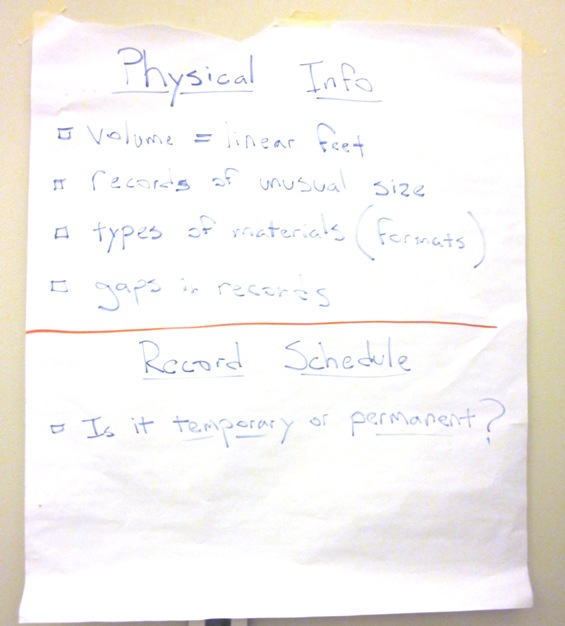 Physical Info
volume = linear feet
records of unusual size
types of materials (formats)
gaps in records
Record Schedule
Is it temporary or permanent?